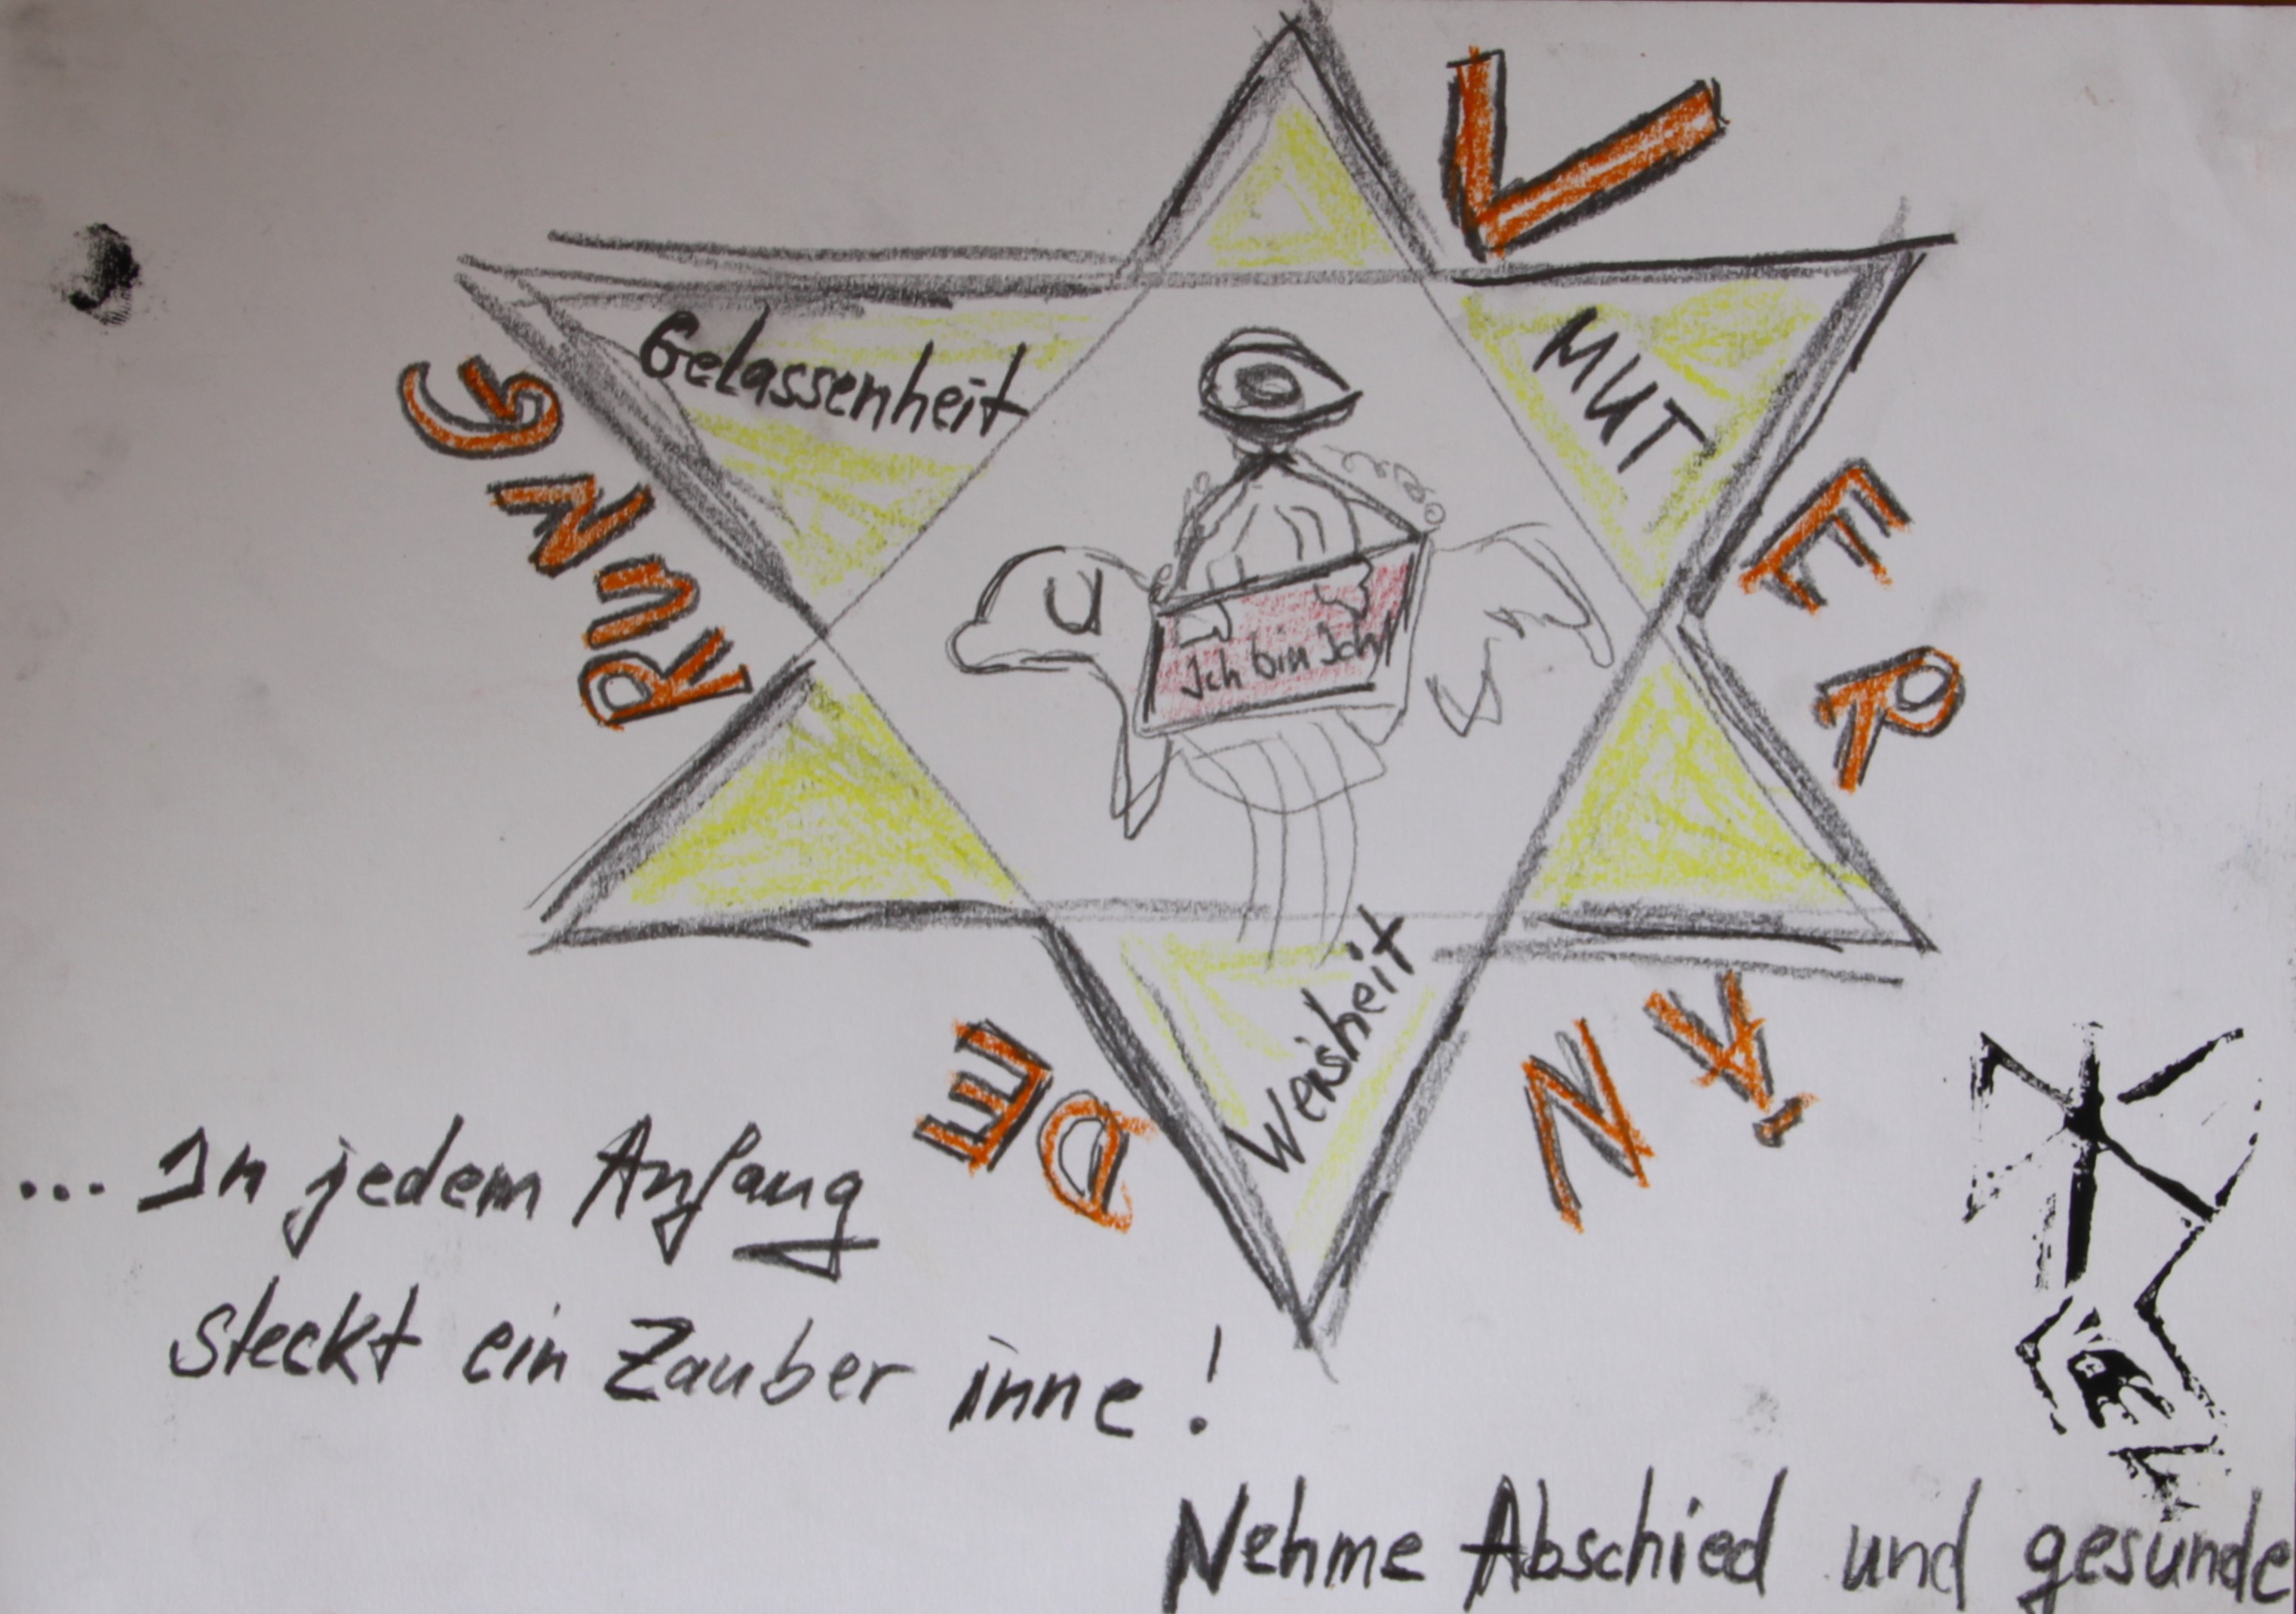 VERÄNDERUNG
Gelassenheit
MUT
Ich bin Ich
Weisheit
... In jedem Anfang
steckt ein Zauber inne!
Nehme Abschied und gesunde